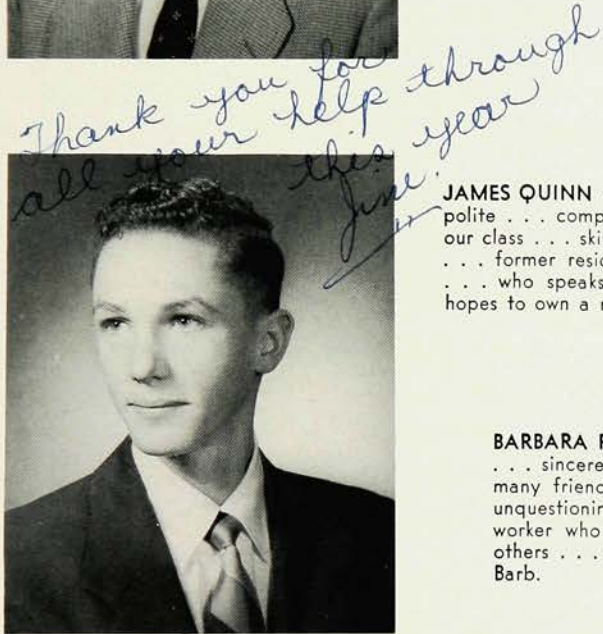 Thank you for
all your help through
this year
Jim.
JAMES QUINN
polite . . . comp
our class . . . ski
. . . former resid
. . . who speaks
hopes to own a r
BARBARA F
. . . sincere
many friend
unquestionin
worker who
others . . .
Barb.